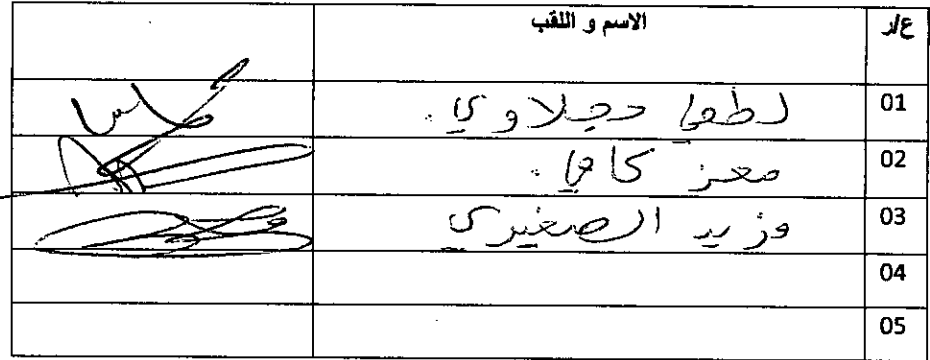 ع/ر الاسم و اللقب
01 لطفي دجلاوي
02 معز كافي
03 مزيد الصغيري
04
05